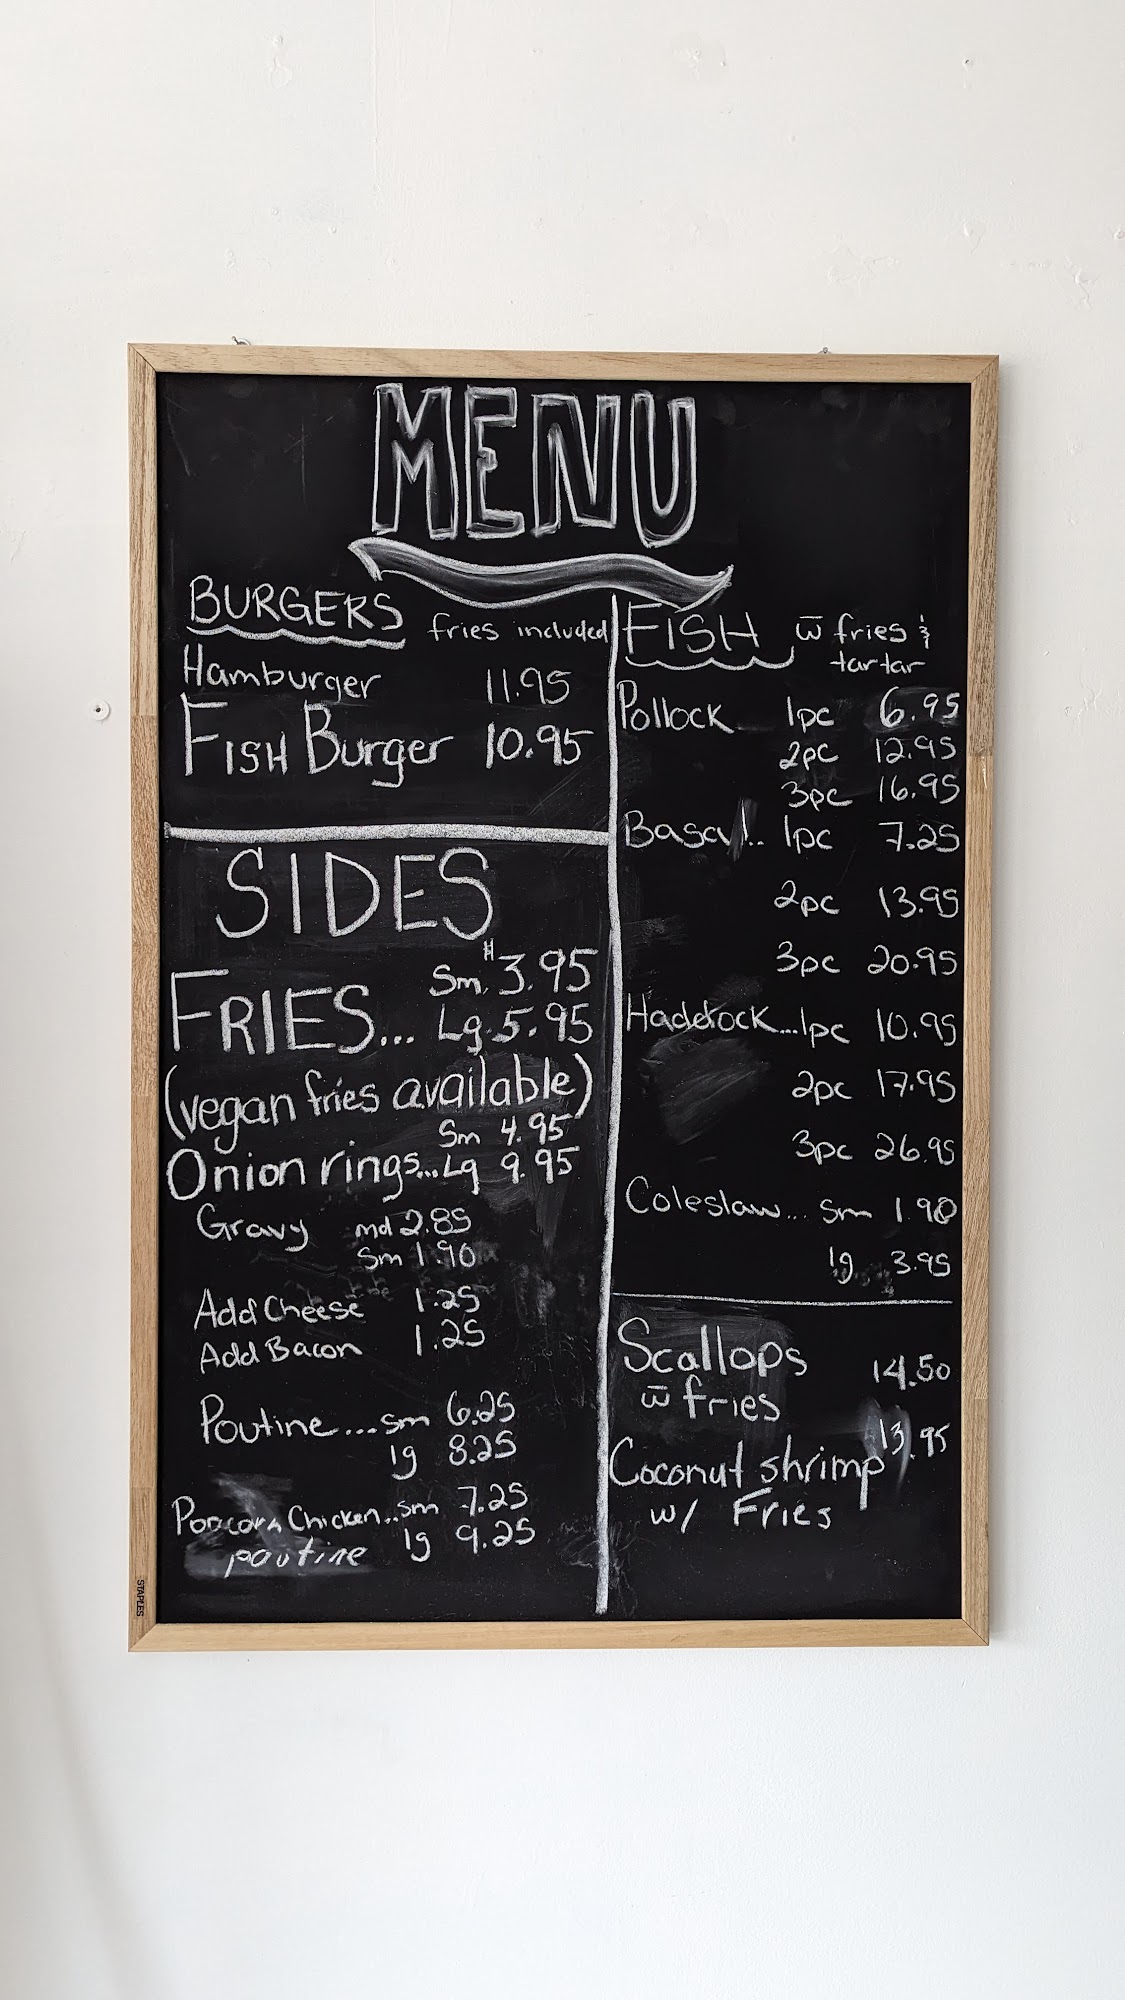 MENU
BURGERS fries included
Hamburger 11.95
FISH Burger 10.95
SIDES
FRIES... Sm. $3.95
Lg. 5.95
(vegan fries available)
Onion rings... Sm 4.95
Lg 9.95
Gravy md 2.85
Sm 1.90
Add Cheese 1.25
Add Bacon 1.25
Poutine.... sm 6.25
lg 8.25
Popcorn Chicken.. sm 7.25
poutine lg 9.25
FISH w̅ fries &
tartar
Pollock 1pc 6.95
2pc 12.95
3pc 16.95
Basa... 1pc 7.25
2pc 13.95
3pc 20.95
Haddock... 1pc 10.95
2pc 17.95
3pc 26.95
Coleslaw... Sm 1.90
lg 3.95
Scallops 14.50
w̅ fries
Coconut shrimp 13.95
w/ Fries
STAPLES